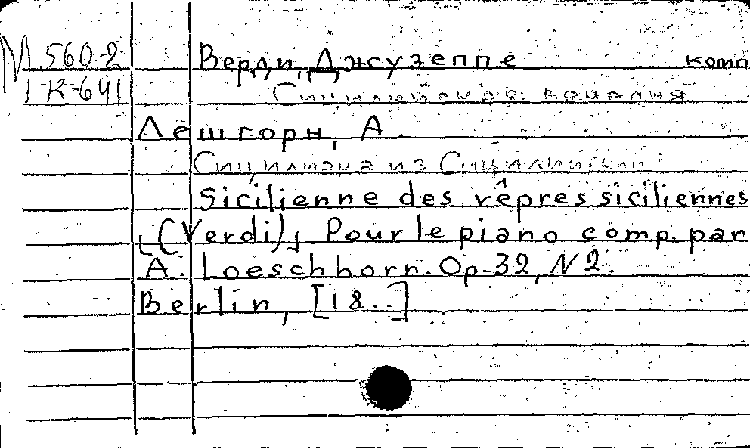 М 560-2 Верди, Джузеппе комп
1 К-641
Лешгорн, А.
Сицилиана из
Sicilienne des vêpres siciliennes
[(Verdi)] Pour le piano comp. par
A. Loeschhorn. Op. 32, N 2.
Berlin, [18..]